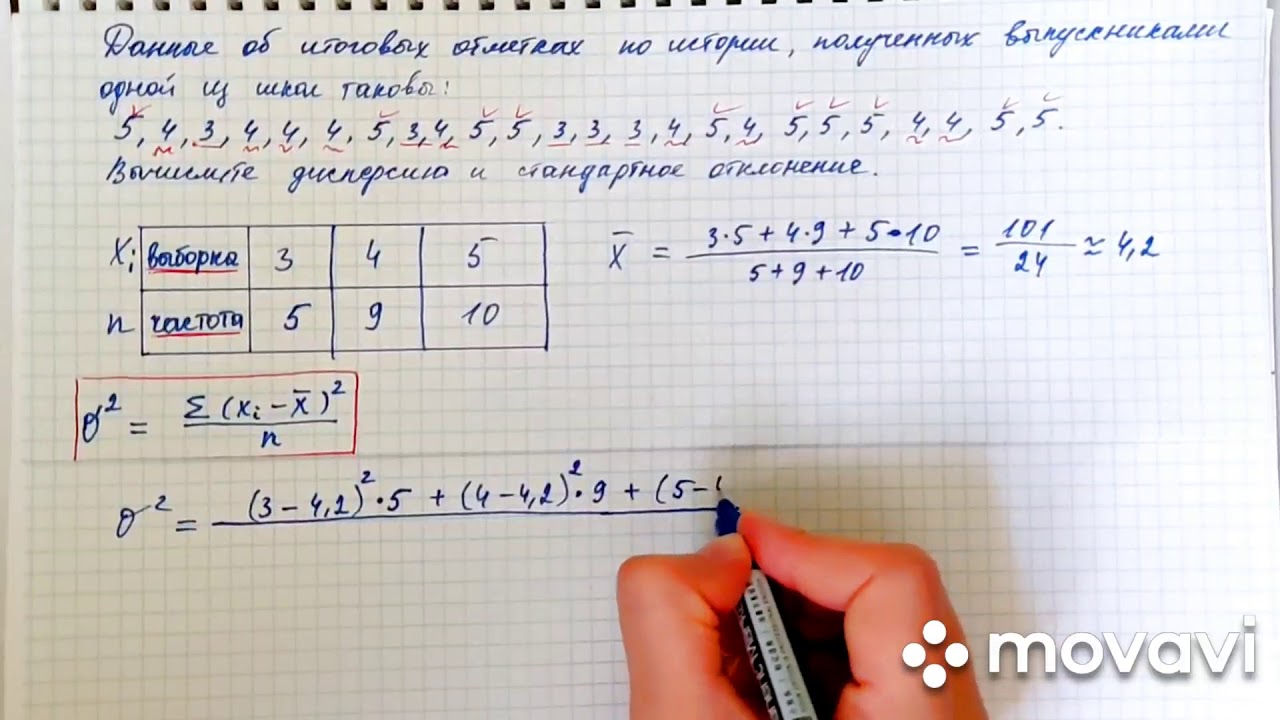 Данные об итоговых отметках по истории, полученных выпускниками
одной из школ таковы:
5, 4, 3, 4, 4, 4, 5, 3, 4, 5, 5, 3, 3, 3, 4, 5, 4, 5, 5, 5, 4, 4, 5, 5.
Вычислите дисперсию и стандартное отклонение.
Xi выборка 3 4 5
n частота 5 9 10
x̄ = (3·5 + 4·9 + 5·10) / (5 + 9 + 10) = 101 / 24 ≈ 4,2
σ² = Σ (xi − x̄)² / n
σ² = (3 − 4,2)²·5 + (4 − 4,2)²·9 + (5 −
movavi